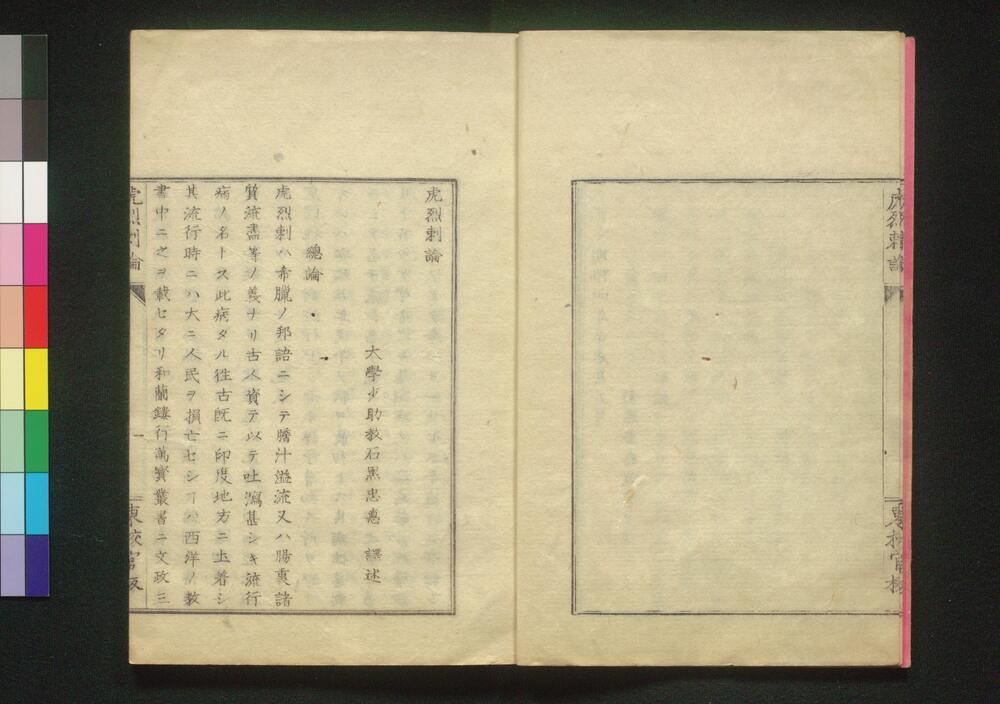 虎烈剌論
東校官板
虎烈剌論
大學少助教石黒忠悳譯述
總論
虎烈剌ハ希臘ノ邦語ニシテ膽汁溢流又ハ腸裏諸
質流盡等ノ義ナリ古人資テ以テ吐瀉甚シキ流行
病ノ名トス此病タル徃古旣ニ印度地方ニ土着シ
其流行時ニハ大ニ人民ヲ損亡セシヿハ西洋ノ教
書中ニ之ヲ載セタリ和蘭鏤行萬寳叢書ニ文政三
虎烈剌論
一
東校官板